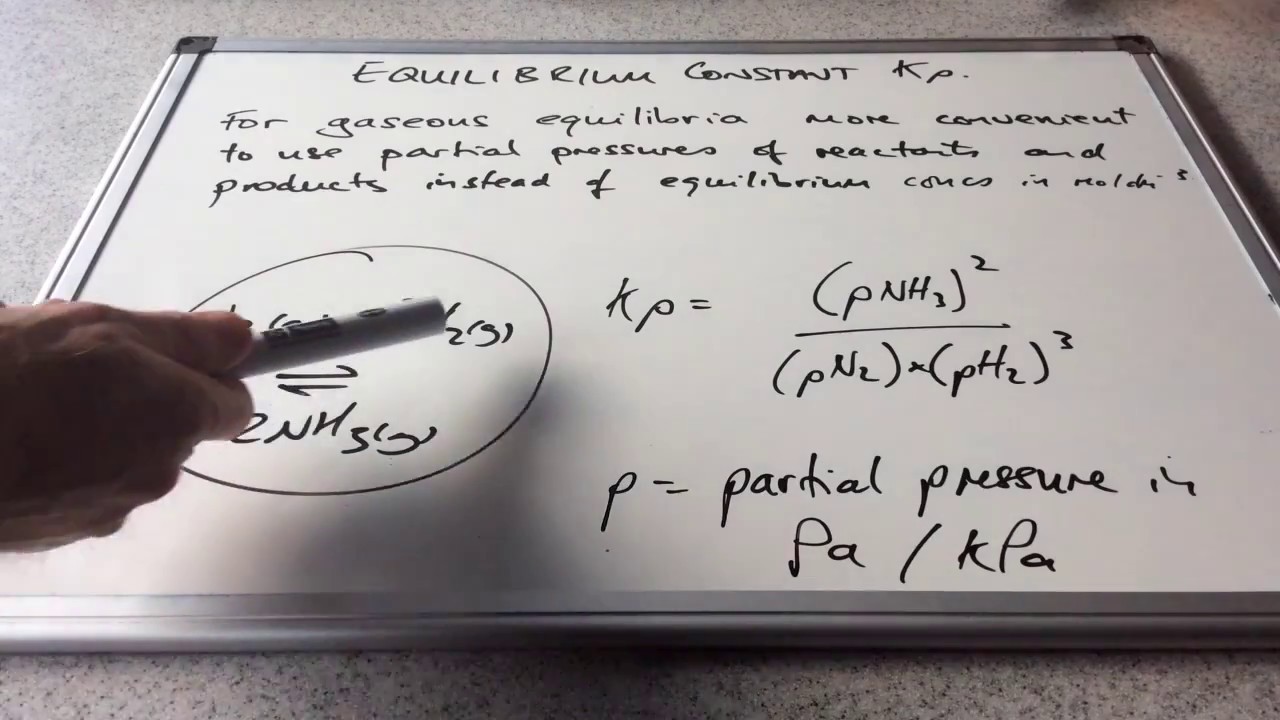 EQUILIBRIUM CONSTANT Kp.
For gaseous equilibria more convenient
to use partial pressures of reactants and
products instead of equilibrium concs in
2(g)
⇌
2NH₃(g)
Kp = (pNH₃)² / (pN₂)×(pH₂)³
p = partial pressure in
Pa / kPa